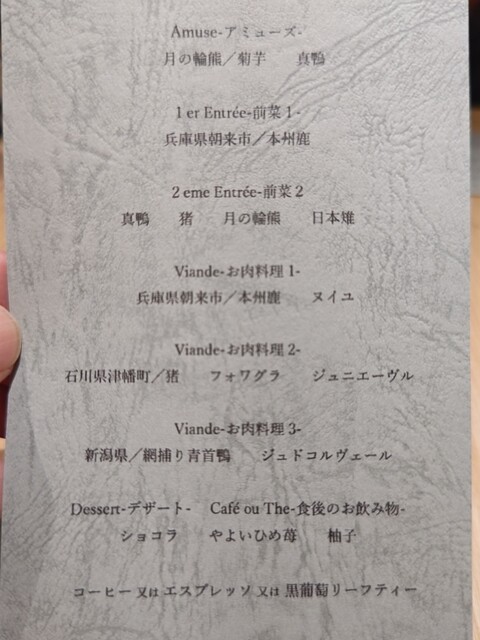 Amuse-アミューズ-
月の輪熊／菊芋　　真鴨
1 er Entrée-前菜 1-
兵庫県朝来市／本州鹿
2 eme Entrée-前菜 2
真鴨　　猪　　月の輪熊　　日本雉
Viande-お肉料理 1-
兵庫県朝来市／本州鹿　　ヌイユ
Viande-お肉料理 2-
石川県津幡町／猪　　フォワグラ　　ジュニエーヴル
Viande-お肉料理 3-
新潟県／網捕り青首鴨　　ジュドコルヴェール
Dessert-デザート-　Café ou The-食後のお飲み物-
ショコラ　　やよいひめ苺　　柚子
コーヒー 又は エスプレッソ 又は 黒葡萄リーフティー